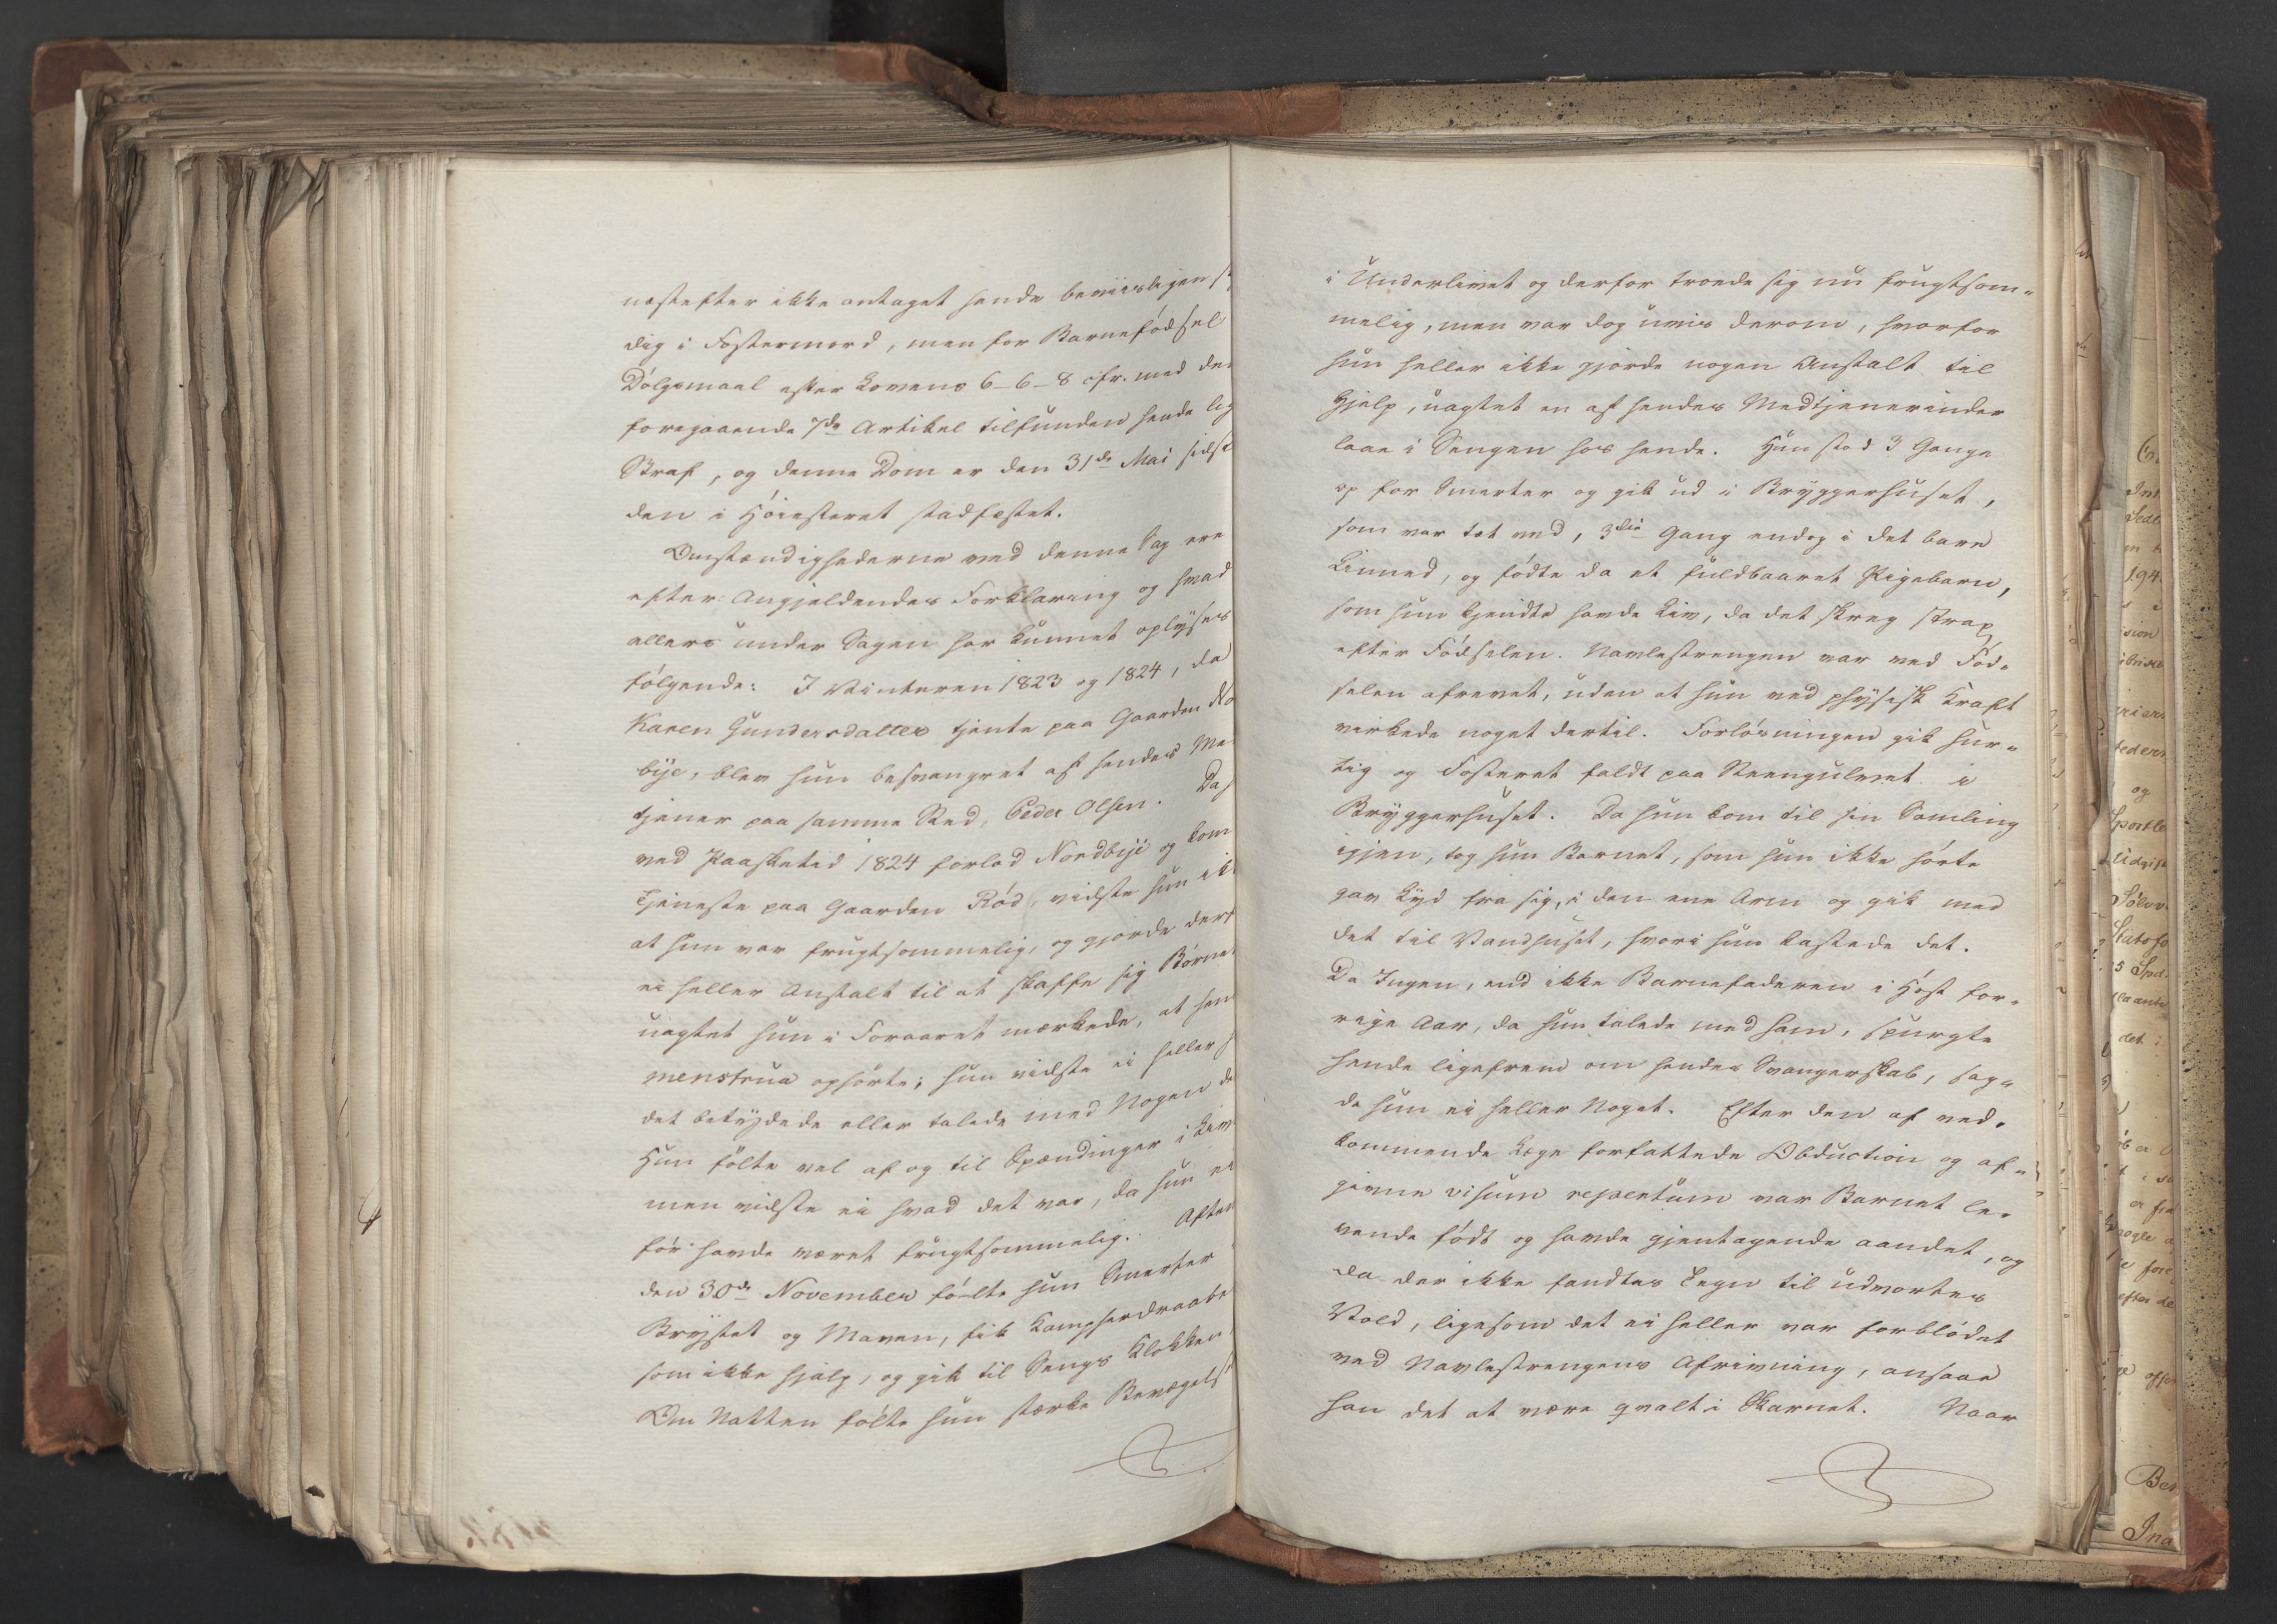 næstefter ikke antaget hende beviisligen s
dig i Fostermord, men for Barnefødsel
Dølgsmaal efter Lovens 6-6-8 cfr. med de
foregaaende 7de Artikel tilfunden hende lig
Straf, og denne Dom er den 31de Mai sidst
den i Høiesteret stadfæstet.
Omstændighederne ved denne Sag ere
efter Angjeldendes Forklaring og hvad
ellers under Sagen har kunnet oplyses
følgende: I Vinteren 1823 og 1824, da
Karen Gundersdatter tjente paa Gaarden No
bye, blev hun besvangret af hendes Me
tjener paa samme Sted, Peder Olsen. Da
ved Paasketid 1824 forlod Nordbye og kom
Tjeneste paa Gaarden Rød, vidste hun ik
at hun var frugtsommelig, og gjorde derf
ei heller Anstalt til at skaffe sig Børne
uagtet hun i Foraaret mærkede, at hen
menstrua ophørte; hun vidste ei heller
det betydede eller talede med Nogen de
Hun følte vel af og til Spændinger i Liv
men vidste ei hvad det var, da hun ei
før havde været frugtsommelig. Aften
den 30de November følte hun Smerter
Brystet og Maven, fik Kampherdraabe
som ikke hjalp, og gik til Sengs Klokken
Om Natten følte hun stærke Bevægels
i Underlivet og derfor troede sig nu frugtsom-
melig, men var dog uvis derom, hvorfor
hun heller ikke gjorde nogen Anstalt til
Hjelp, uagtet en af hendes Medtjenerinder
laae i Sengen hos hende. Hun stod 3 Gange
op for Smerter og gik ud i Bryggerhuset,
som var tæt ved, 3die Gang endog i det bare
Linned, og fødte da et fuldbaaret Pigebarn,
som hun kjendte havde Liv, da det skreg strax
efter Fødselen. Navlestrengen var ved Fød-
selen afrevet, uden at hun ved physisk Kraft
virkede noget dertil. Forløsningen gik hur-
tig og Fosteret faldt paa Steengulvet i
Bryggerhuset. Da hun kom til sin Samling
igjen, tog hun Barnet, som hun ikke hørte
gav Lyd fra sig, i den ene Arm og gik med
det til Vandhuset, hvori hun kastede det.
Da Ingen, end ikke Barnefaderen i Høst for-
rige Aar, da hun talede med ham, spurgte
hende ligefrem om hendes Svangerskab, sag-
de hun ei heller Noget. Efter den af ved-
kommende Læge forfattede Obduction og af-
givne visum repertum var Barnet le-
vende født og havde gjentagende aandet, og
da der ikke fandtes Tegn til udvortes
Vold, ligesom det ei heller var forblødet
ved Navlestrengens Afrivning, ansaae
han det at være qvalt i Skarnet. Naar